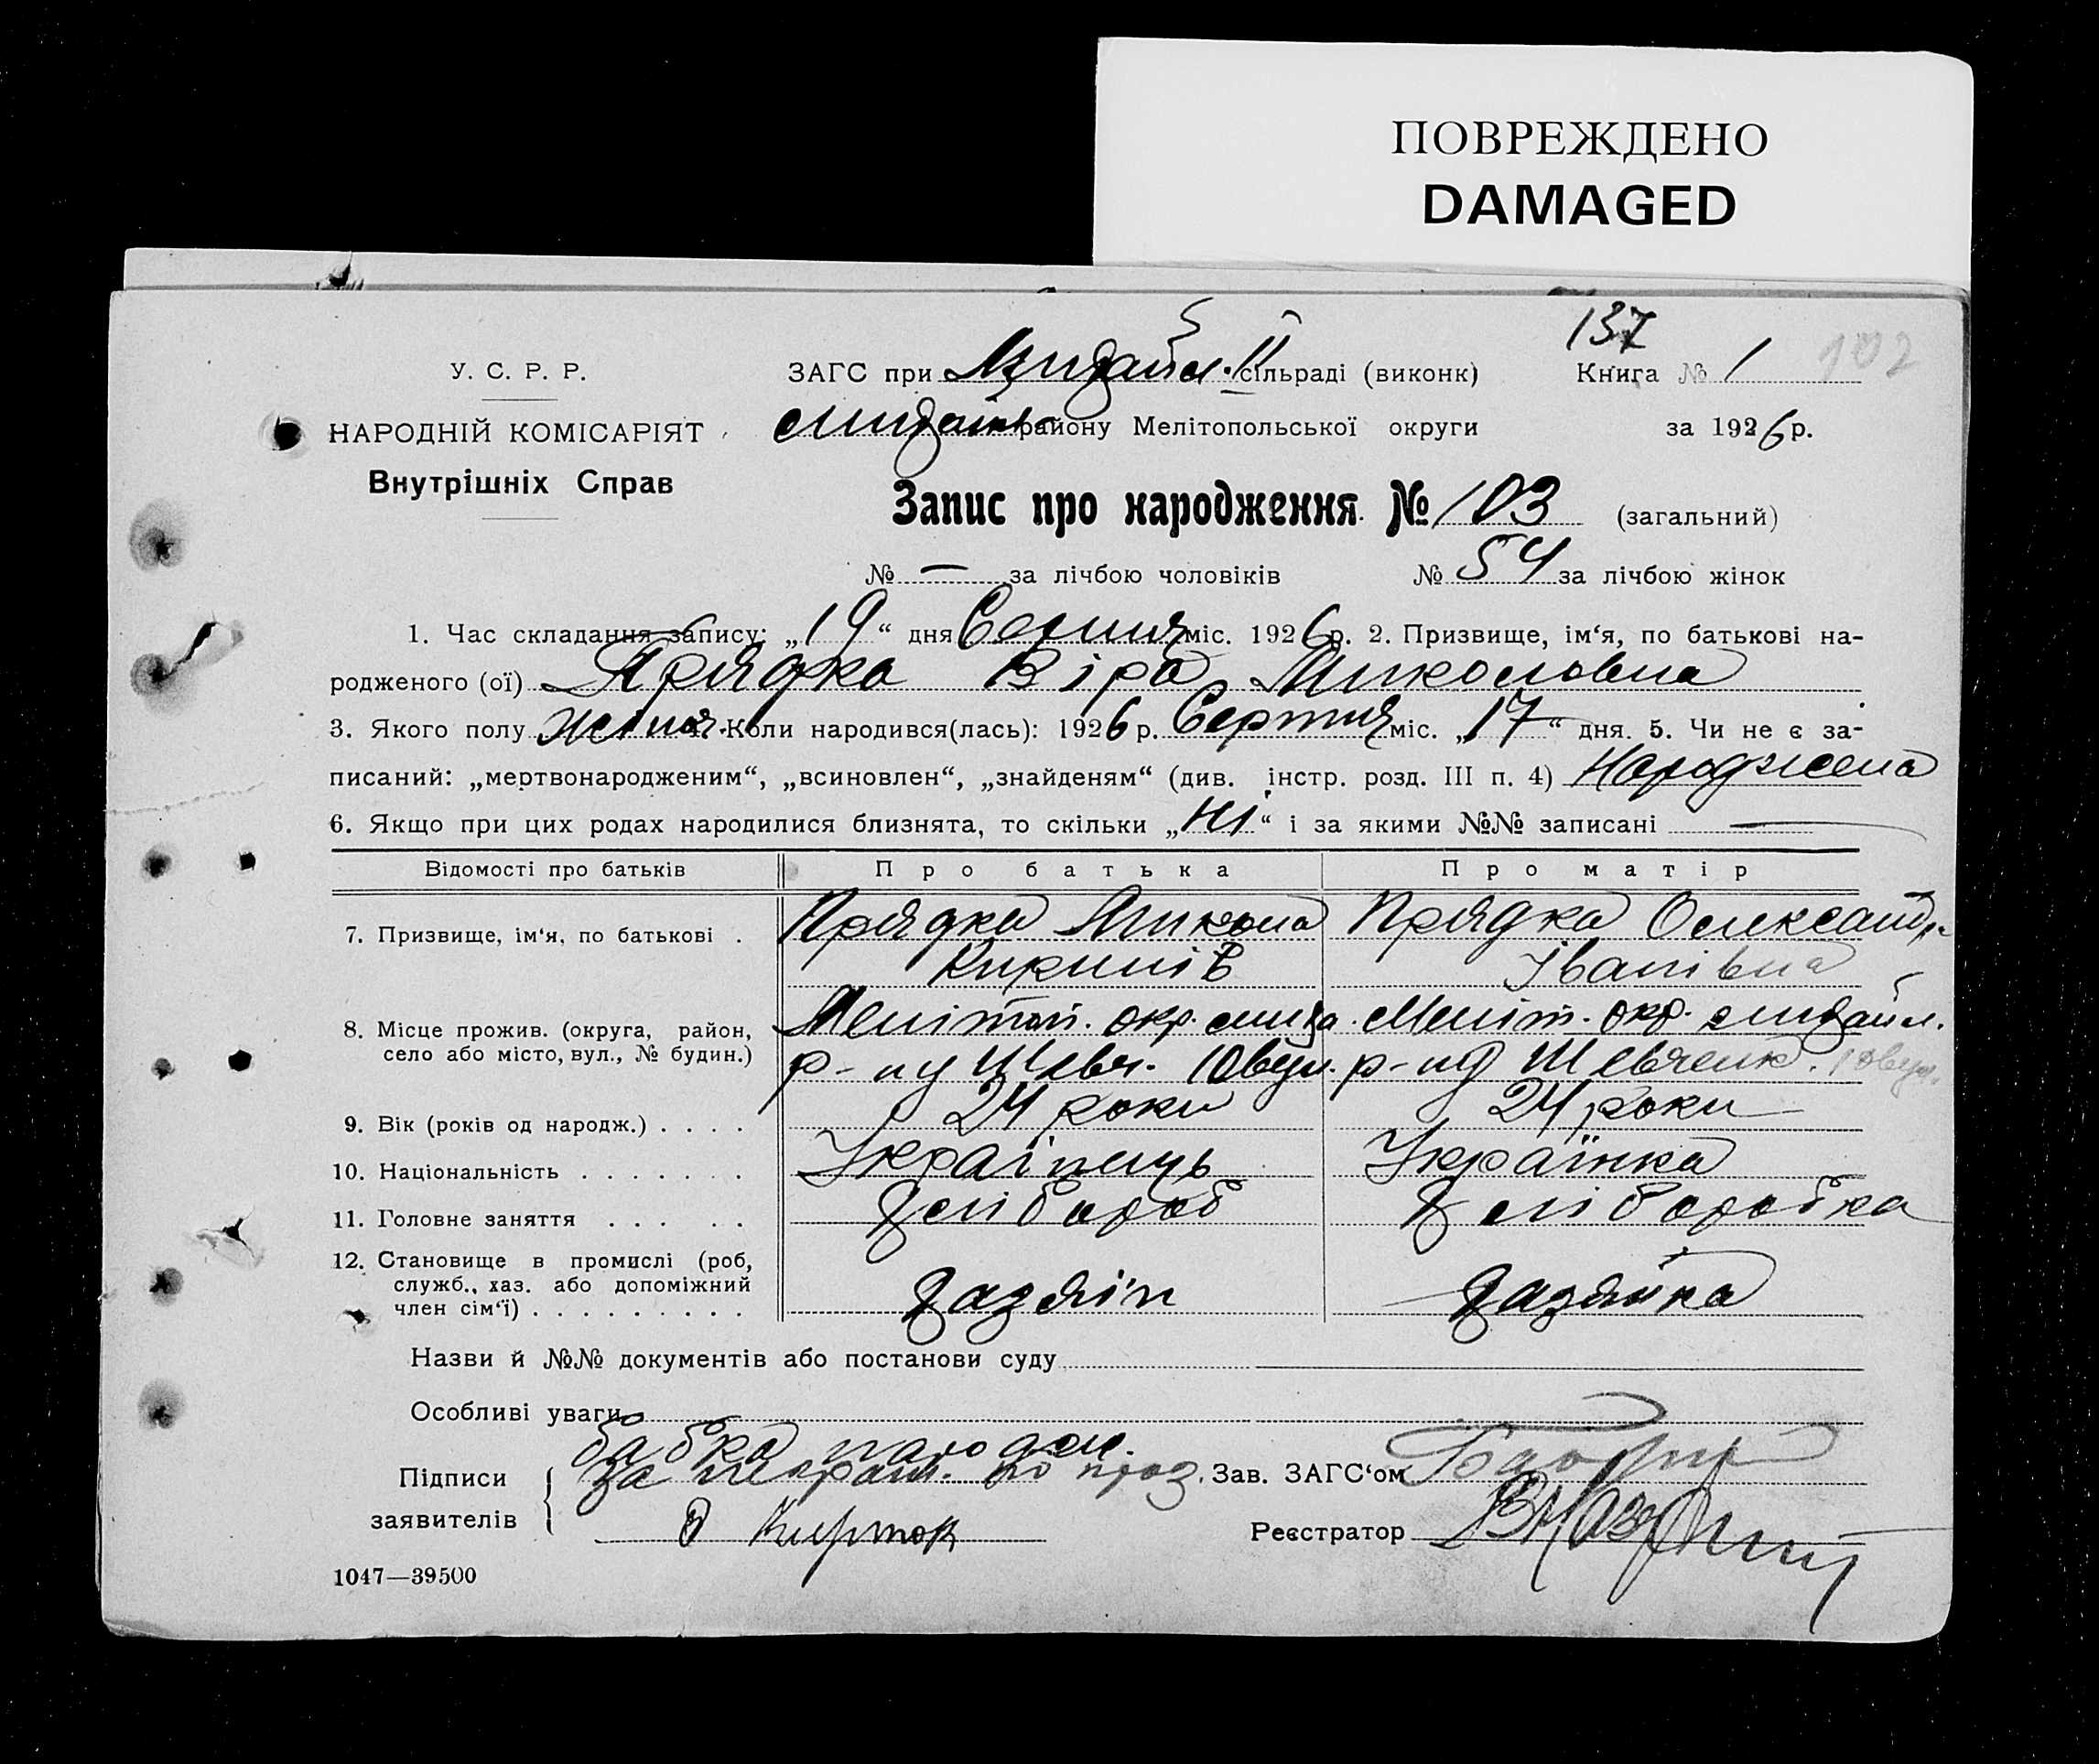 ПОВРЕЖДЕНО
DAMAGED
137
У. С. Р. Р. ЗАГС при Михайл. II сільраді (виконк) Книга № 1 102
НАРОДНІЙ КОМІСАРІЯТ Михайл району Мелітопольської округи за 1926 р.
Внутрішніх Справ
Запис про народження № 103 (загальний)
№ — за лічбою чоловіків № 54 за лічбою жінок
1. Час складання запису: „19“ дня Серпня міс. 1926 р. 2. Призвище, ім‘я, по батькові на-
родженого (ої) Прядка Віра Миколовна
3. Якого полу жіноч. Коли народився(лась): 1926 р. Серпня міс. „17“ дня. 5. Чи не є за-
писаний: „мертвонародженим“, „всиновлен“, „знайденям“ (див. інстр. розд. III п. 4) Народжена
6. Якщо при цих родах народилися близнята, то скільки „Ні“ і за якими №№ записані —
Відомості про батьків Про батька Про матір
7. Призвище, ім‘я, по батькові . Прядка Микола Прядка Олександра
Кирилів Іванівна
8. Місце прожив. (округа, район, Меліт. окр. Меліт. окр. Михайл.
село або місто, вул., № будин.) р-ну Шевч. 10 вул. р-ну Шевченк. 10 вул.
9. Вік (років од народж.) . . . . 24 роки 24 роки
10. Національність . . . . . . . Українець Українка
11. Головне заняття . . . . . Хлібороб Хліборобка
12. Становище в промислі (роб,
служб., хаз. або допоміжний Хазяїн Хазяйка
член сім‘ї) . . . . . . . . .
Назви й №№ документів або постанови суду
Особливі уваги
бабка
Підписи за неграм. по проз. Зав. ЗАГС‘ом
заявителів Реєстратор
1047—39500